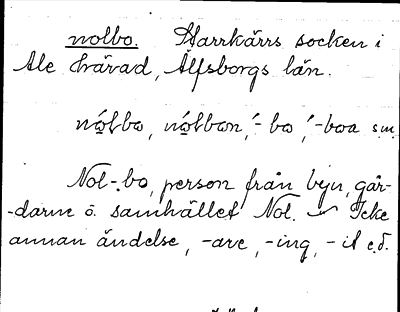 nolbo. Starrkärrs socken i
Ale härad, Älfsborgs län.
nọ́lbo, nọ́lbon, ́- bo ́-boa sm.
Nol-bo, person från byn, går-
-darne o. samhället Nol. Icke
annan ändelse, -are, -ing, -it e.d.